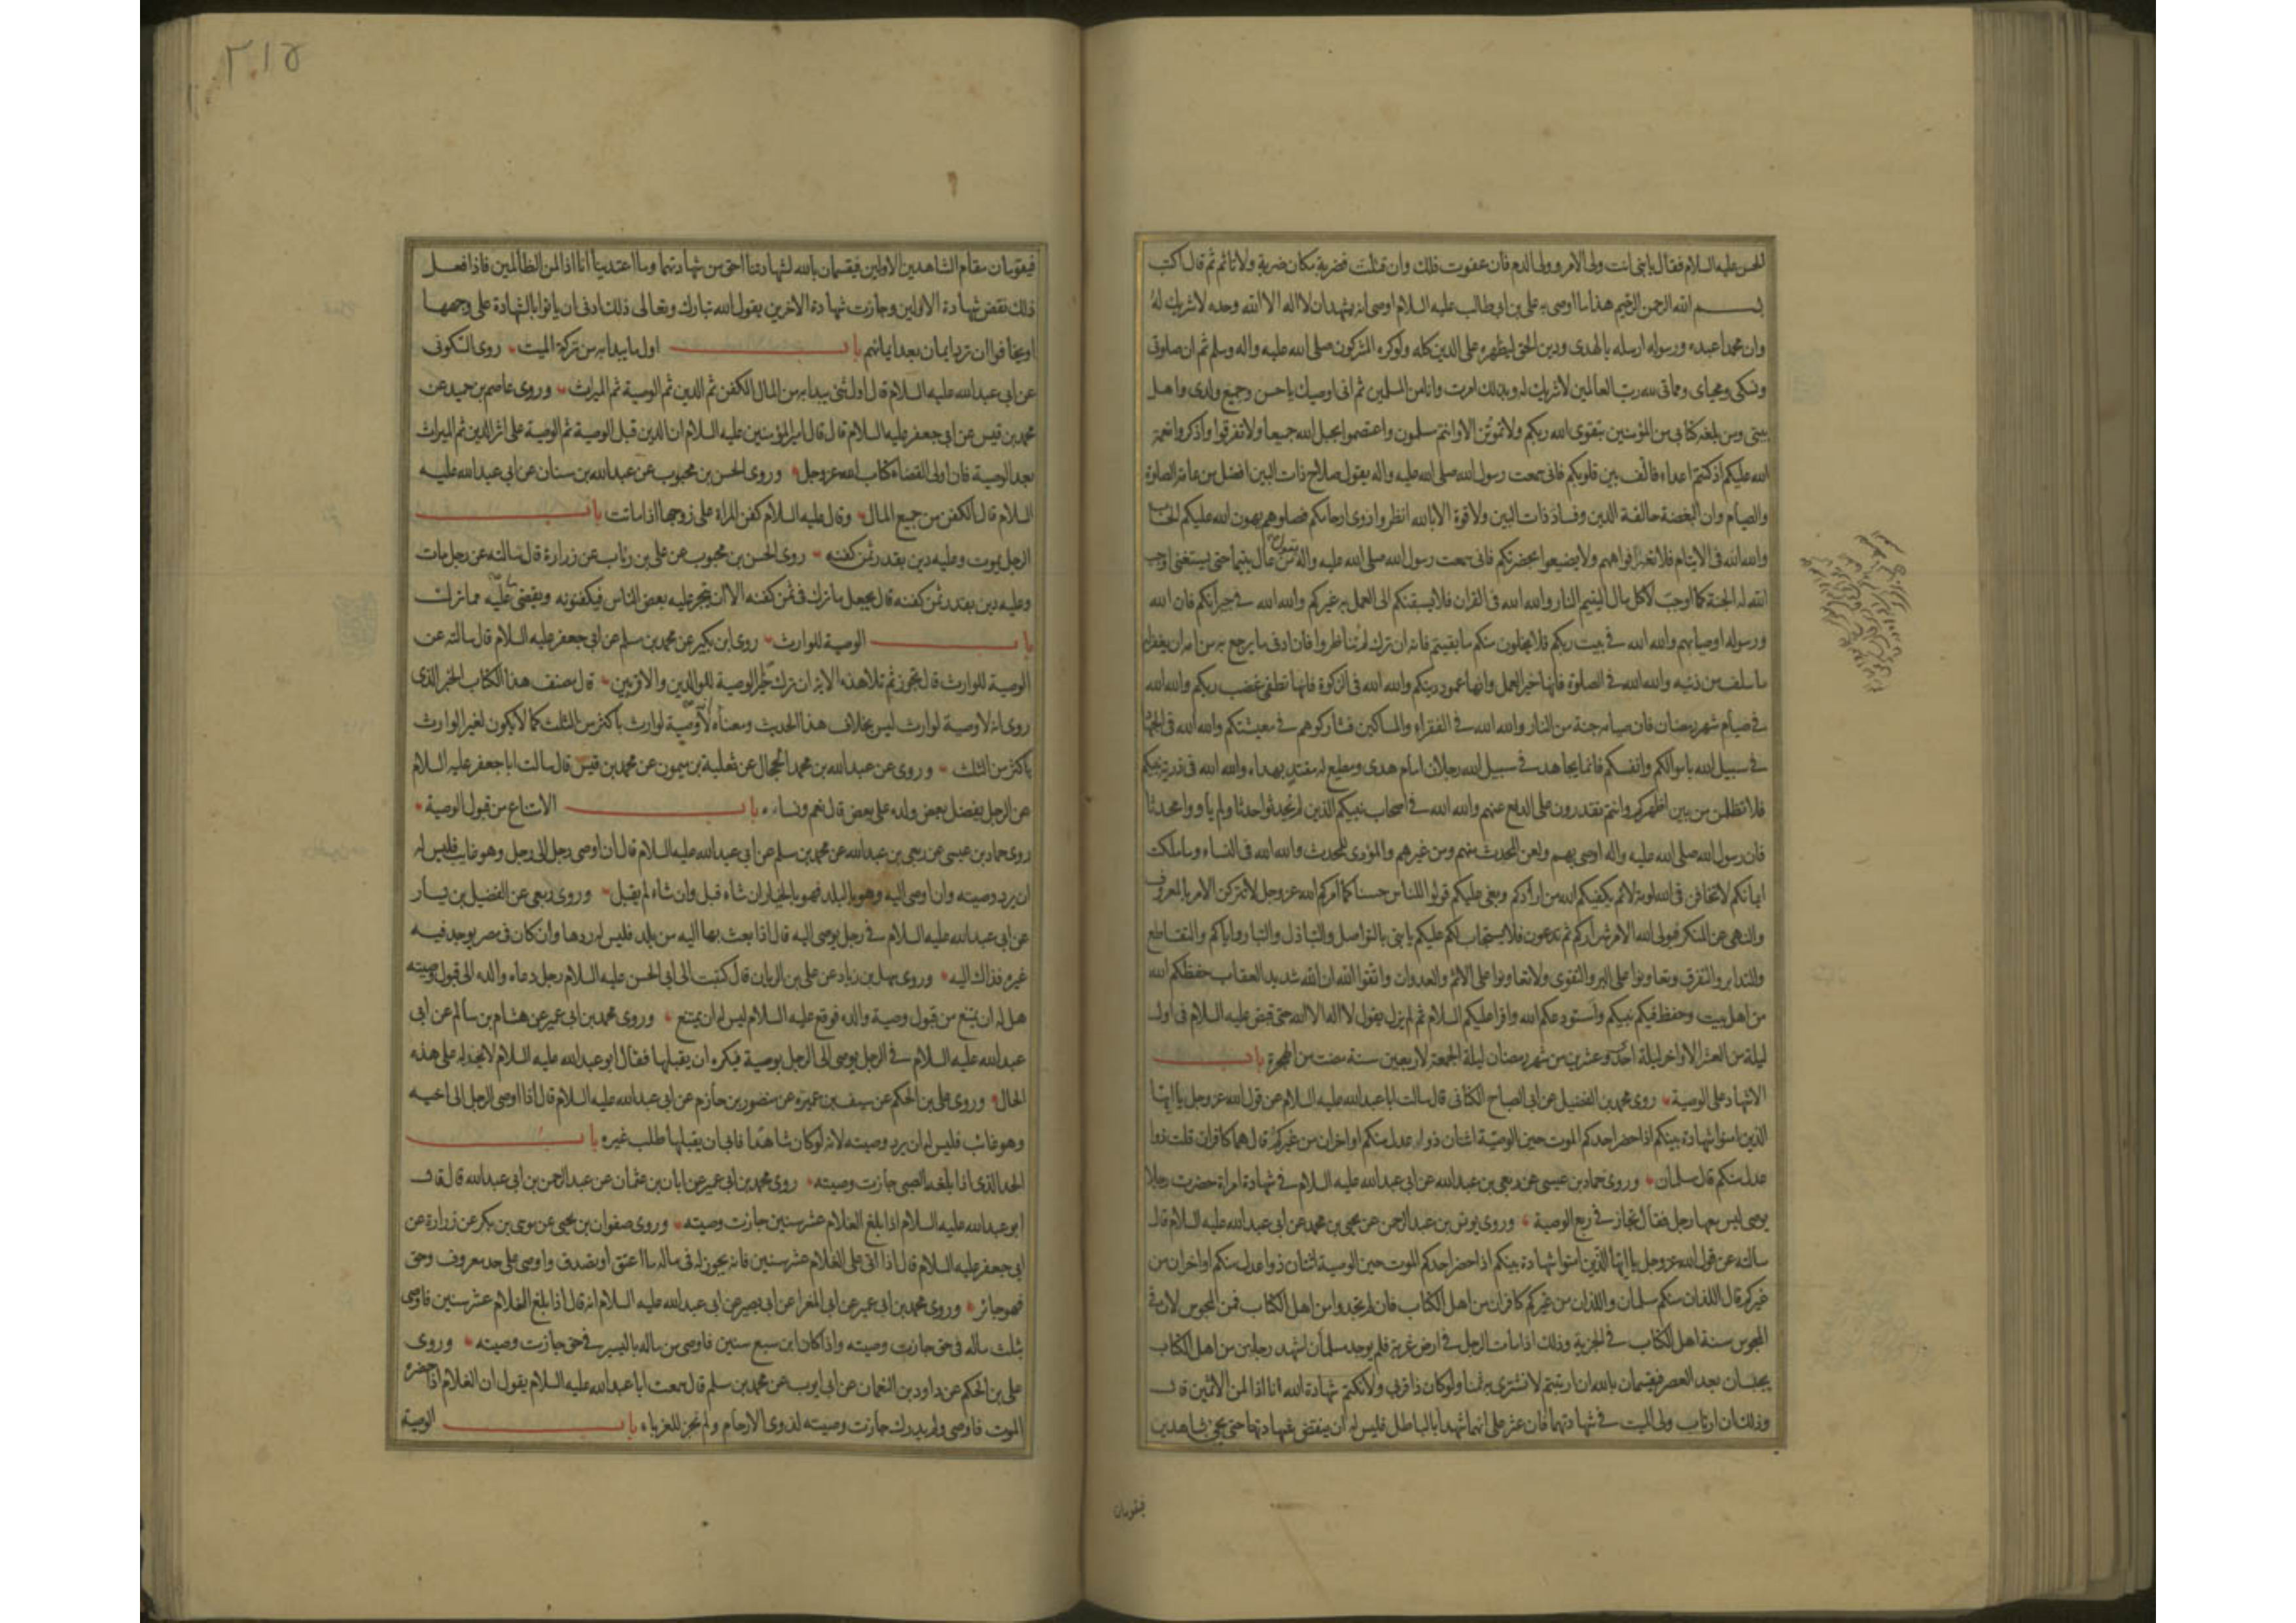 الحسن عليه السلام فقال يا بنى انت ولى الامر وولى الدم فان عفوت فلك وان قتلت فضربة مكان ضربة ولا تاثم ثم قال اكتب
بسم الله الرحمن الرحيم هذا ما اوصى به على بن ابى طالب عليه السلام اوصى انه يشهد ان لا اله الا الله وحده لا شريك له
وان محمدا عبده ورسوله ارسله بالهدى ودين الحق ليظهره على الدين كله ولو كره المشركون صلى الله عليه واله وسلم ثم ان صلوتى
ونسكى ومحياى ومماتى لله رب العالمين لا شريك له وبذلك امرت وانا من المسلمين ثم انى اوصيك يا حسن وجميع ولدى واهل
بيتى ومن بلغه كتابى من المؤمنين بتقوى الله ربكم ولا تموتن الا وانتم مسلمون واعتصموا بحبل الله جميعا ولا تفرقوا واذكروا نعمة
الله عليكم اذ كنتم اعداء فالف بين قلوبكم فانى سمعت رسول الله صلى الله عليه واله يقول صلاح ذات البين افضل من عامة الصلوة
والصيام وان البغضة حالقة الدين وفساد ذات البين ولا قوة الا بالله انظروا ذوى ارحامكم فصلوهم يهون الله عليكم الحساب
والله الله فى الايتام فلا افواههم ولا يضيعوا بحضرتكم فانى سمعت رسول الله صلى الله عليه واله يقول من عال يتيما حتى يستغنى اوجب
الله له الجنة كما اوجب لاكل مال اليتيم النار والله الله فى القران فلا يسبقنكم الى العمل به غيركم والله الله فى جيرانكم فان الله
ورسوله اوصيا بهم والله الله فى بيت ربكم فلا يخلون منكم ما بقيتم فانه ان ترك لم تناظروا فان ادنى ما يرجع به من امه ان يغفر له
ما سلف من ذنبه والله الله فى الصلوة فانها خير العمل وانها عمود دينكم والله الله فى الزكوة فانها تطفى غضب ربكم والله الله
فى صيام شهر رمضان فان صيامه جنة من النار والله الله فى الفقراء والمساكين فشاركوهم فى معيشتكم والله الله فى الجهاد
فى سبيل الله باموالكم وانفسكم فانما يجاهد فى سبيل الله رجلان امام هدى ومطيع له مقتد بهداه والله الله فى ذرية نبيكم
فلا تظلمن من بين اظهركم وانتم تقدرون على الدفع عنهم والله الله فى اصحاب نبيكم الذين لم يحدثوا حدثا ولم ياووا محدثا
فان رسول الله صلى الله عليه واله اوصى بهم ولعن المحدث منهم ومن غيرهم والمؤوى للمحدث والله الله فى النساء وما ملكت
ايمانكم لا تخافن فى الله لومة لائم يكفيكم الله من ارادكم وبغى عليكم قولوا للناس حسنا كما امركم الله عز وجل لا تتركن الامر بالمعروف
والنهى عن المنكر فيولى الله الامر شراركم ثم تدعون فلا يستجاب لكم عليكم يا بنى بالتواصل والتباذل والتبار واياكم والتقاطع
والتدابر والتفرق وتعاونوا على البر والتقوى ولا تعاونوا على الاثم والعدوان واتقوا الله ان الله شديد العقاب حفظكم الله
من اهل بيت وحفظ فيكم نبيكم واستودعكم الله واقرا عليكم السلام ثم لم يزل يقول لا اله الا الله حتى قبض عليه السلام فى اول
ليلة من العشر الاواخر ليلة احدى وعشرين من شهر رمضان ليلة الجمعة لاربعين سنة مضت من الهجرة باب
الاشهاد على الوصية روى محمد بن الفضيل عن ابى الصباح الكنانى قال سالت ابا عبد الله عليه السلام عن قول الله عز وجل يا ايها
الذين امنوا شهادة بينكم اذا حضر احدكم الموت حين الوصية اثنان ذوا عدل منكم او اخران من غيركم قال هما كافران قلت ذوا
عدل منكم قال مسلمان وروى حماد بن عيسى عن ربعى بن عبد الله عن ابى عبد الله عليه السلام فى شهادة امراة حضرت رجلا
يوصى ليس معها رجل فقال تجاز فى ربع الوصية وروى يونس بن عبد الرحمن عن يحيى بن محمد عن ابى عبد الله عليه السلام قال
سالته عن قول الله عز وجل يا ايها الذين امنوا شهادة بينكم اذا حضر احدكم الموت حين الوصية اثنان ذوا عدل منكم او اخران من
غيركم قال اللذان منكم مسلمان واللذان من غيركم كافران من اهل الكتاب فان لم تجدوا من اهل الكتاب فمن المجوس لان فى
المجوس سنة اهل الكتاب فى الجزية وذلك اذا مات الرجل فى ارض غربة فلم يوجد مسلمان اشهد رجلين من اهل الكتاب
يحبسان بعد العصر فيقسمان بالله ان ارتبتم لا نشترى به ثمنا ولو كان ذا قربى ولا نكتم شهادة الله انا اذا لمن الاثمين قال
وذلك ان ارتاب ولى الميت فى شهادتهما فان عثر على انهما شهدا بالباطل فليس له ان ينقض شهادتهما حتى يجئ شاهدين
فيقومان
٢١٥
فيقومان مقام الشاهدين الاولين فيقسمان بالله لشهادتنا احق من شهادتهما وما اعتدينا انا اذا لمن الظالمين فاذا فعل
ذلك نقض شهادة الاولين وجازت شهادة الاخرين يقول الله تبارك وتعالى ذلك ادنى ان ياتوا بالشهادة على وجهها
او يخافوا ان ترد ايمان بعد ايمانهم باب اول ما يبدا به من تركة الميت روى السكونى
عن ابى عبد الله عليه السلام قال اول شئ يبدا به من المال الكفن ثم الدين ثم الوصية ثم الميراث وروى عاصم بن حميد عن
محمد بن قيس عن ابى جعفر عليه السلام قال قال امير المؤمنين عليه السلام ان الدين قبل الوصية ثم الوصية على اثر الدين ثم الميراث
بعد الوصية فان اولى القضاء كتاب الله عز وجل وروى الحسن بن محبوب عن عبد الله بن سنان عن ابى عبد الله عليه
السلام قال الكفن من جميع المال وقال عليه السلام كفن المراة على زوجها اذا ماتت باب
الرجل يموت وعليه دين بقدر ثمن كفنه روى الحسن بن محبوب عن على بن رئاب عن زرارة قال سالته عن رجل مات
وعليه دين بقدر ثمن كفنه قال يجعل ما ترك فى ثمن كفنه الا ان يتجر عليه بعض الناس فيكفنونه ويقضى ما عليه مما ترك
باب الوصية للوارث روى ابن بكير عن محمد بن مسلم عن ابى جعفر عليه السلام قال سالته عن
الوصية للوارث قال تجوز ثم تلا هذه الاية ان ترك خيرا الوصية للوالدين والاقربين قال مصنف هذا الكتاب الخبر الذى
روى انه لا وصية لوارث ليس بخلاف هذا الحديث ومعناه انه لا وصية لوارث باكثر من الثلث كما لا يكون لغير الوارث
باكثر من الثلث وروى عن عبد الله بن محمد الحجال عن ثعلبة بن ميمون عن محمد بن قيس قال سالت ابا جعفر عليه السلام
عن الرجل يفضل بعض ولده على بعض قال نعم ونساءه باب الامتناع من قبول الوصية
روى حماد بن عيسى عن ربعى بن عبد الله عن محمد بن مسلم عن ابى عبد الله عليه السلام قال ان اوصى رجل الى رجل وهو غايب فليس له
ان يرد وصيته وان اوصى اليه وهو بالبلد فهو بالخيار ان شاء قبل وان شاء لم يقبل وروى ربعى عن الفضيل بن يسار
عن ابى عبد الله عليه السلام فى رجل يوصى اليه قال اذا بعث بها اليه من بلد فليس له ردها وان كان فى مصر يوجد فيه
غيره فذاك اليه وروى سهل بن زياد عن على بن الريان قال كتبت الى ابى الحسن عليه السلام رجل دعاه والده الى قبول وصيته
هل له ان يمتنع من قبول وصية والده فوقع عليه السلام ليس له ان يمتنع وروى محمد بن ابى عمير عن هشام بن سالم عن ابى
عبد الله عليه السلام فى الرجل يوصى الى الرجل بوصية فيكره ان يقبلها فقال ابو عبد الله عليه السلام لا يخذله على هذه
الحال وروى على بن الحكم عن سيف بن عميرة عن منصور بن حازم عن ابى عبد الله عليه السلام قال اذا اوصى الرجل الى اخيه
وهو غائب فليس له ان يرد وصيته لانه لو كان شاهدا فابى ان يقبلها طلب غيره باب
الحد الذى اذا بلغه الصبى جازت وصيته روى محمد بن ابى عمير عن ابان بن عثمان عن عبد الرحمن بن ابى عبد الله قال قال
ابو عبد الله عليه السلام اذا بلغ الغلام عشر سنين جازت وصيته وروى صفوان بن يحيى عن موسى بن بكر عن زرارة عن
ابى جعفر عليه السلام قال اذا اتى على الغلام عشر سنين فانه يجوز له فى ماله ما اعتق او تصدق واوصى على حد معروف وحق
فهو جائز وروى محمد بن ابى عمير عن ابى المغرا عن ابى بصير عن ابى عبد الله عليه السلام انه قال اذا بلغ الغلام عشر سنين فاوصى
بثلث ماله فى حق جازت وصيته واذا كان ابن سبع سنين فاوصى من ماله باليسير فى حق جازت وصيته وروى
على بن الحكم عن داود بن النعمان عن ابى ايوب عن محمد بن مسلم قال سمعت ابا عبد الله عليه السلام يقول ان الغلام اذا حضره
الموت فاوصى ولم يدرك جازت وصيته لذوى الارحام ولم تجز للغرباء باب الوصية